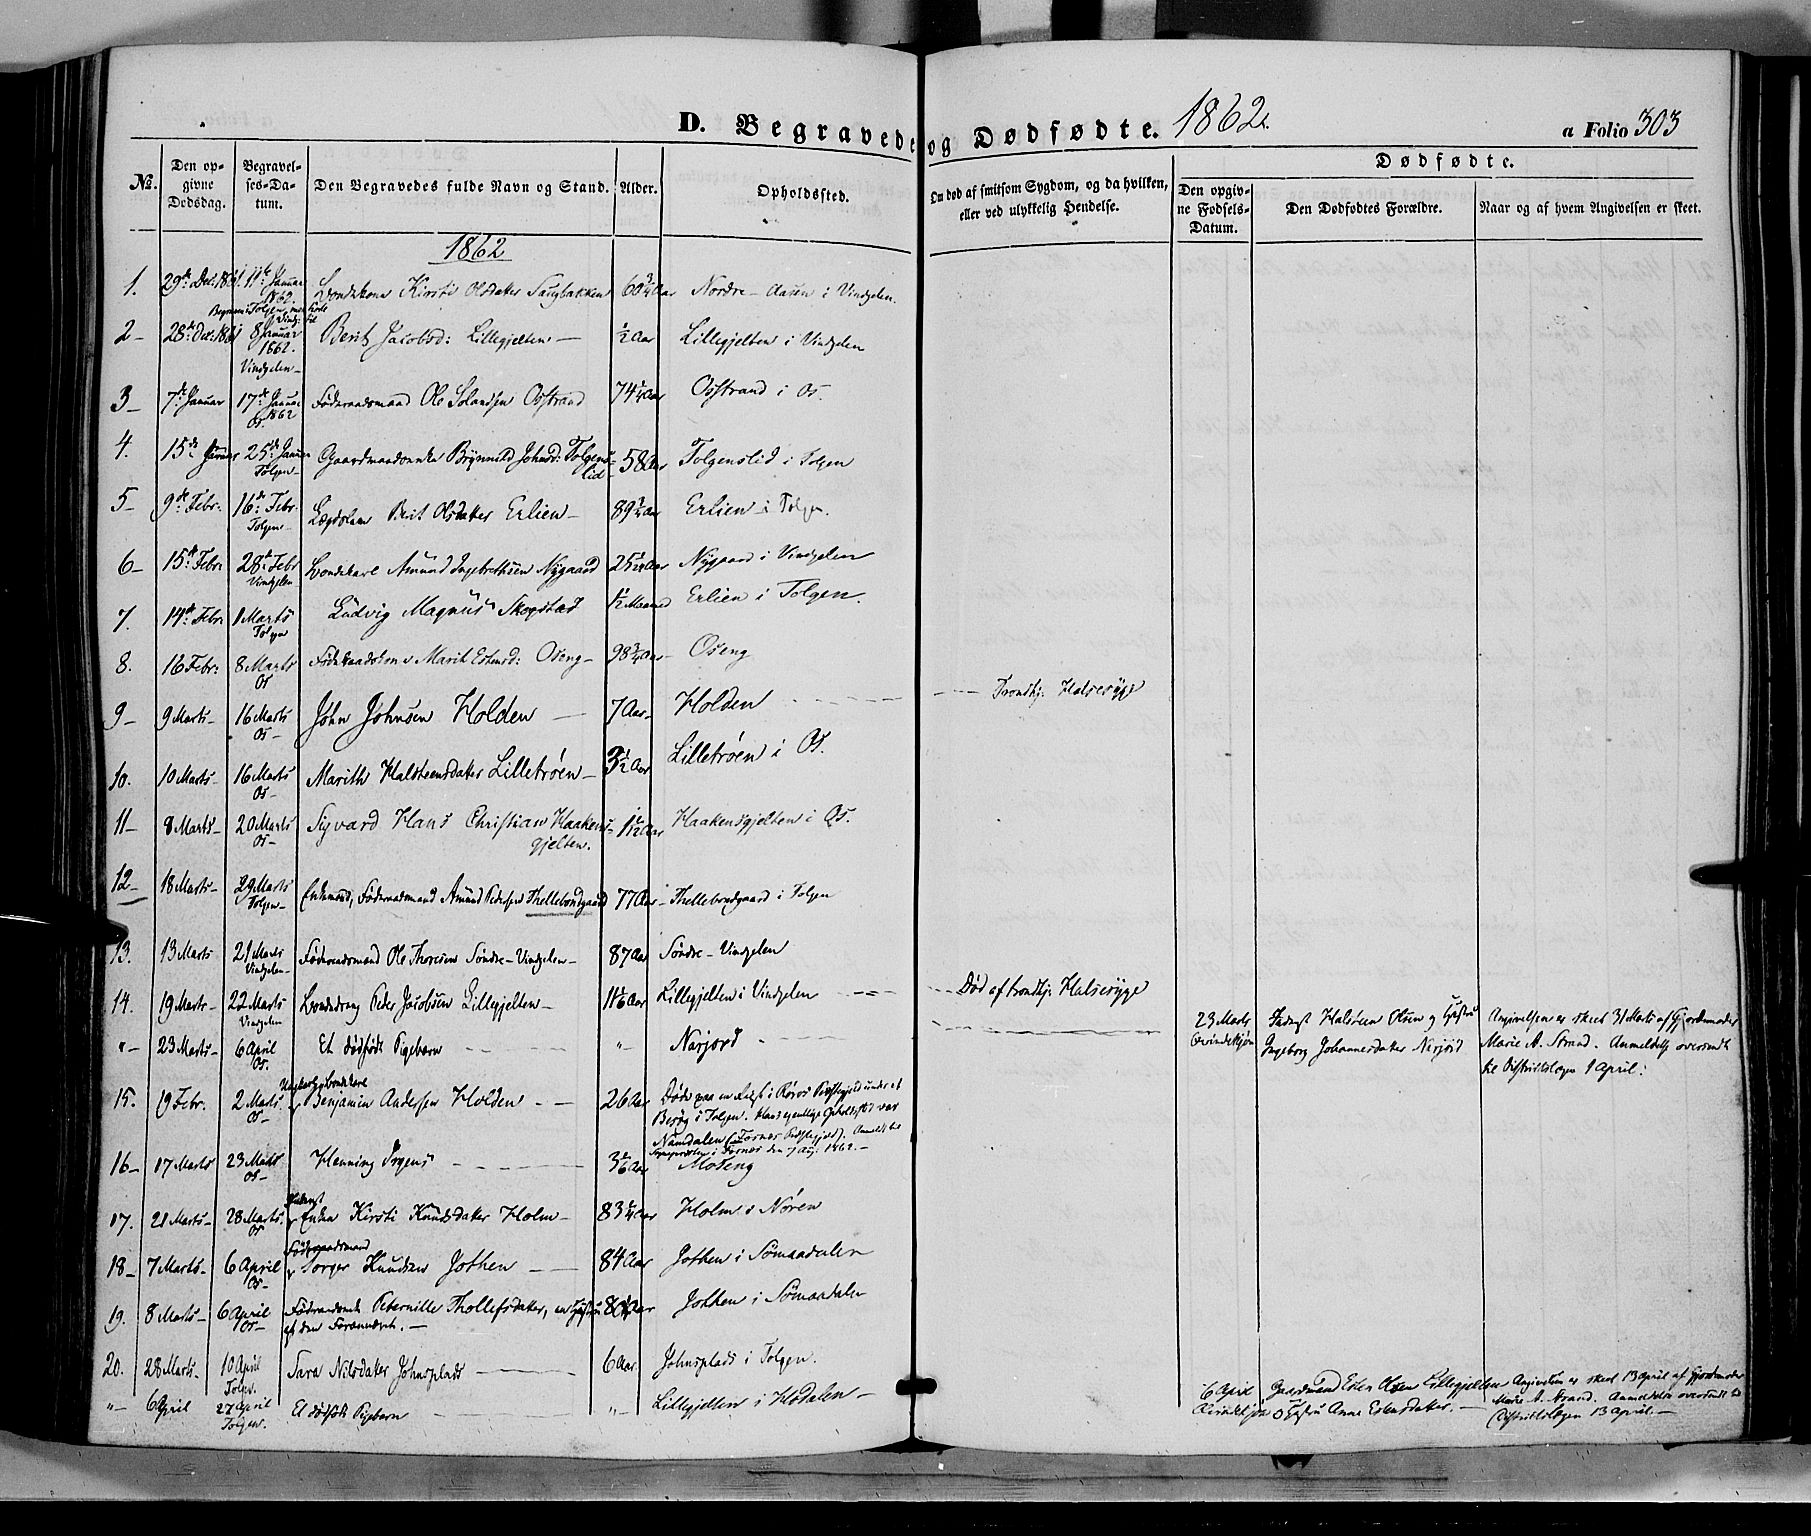 D. Begravede og Dødfødte. 1862.
a Folio 303
No. Den opgivne Dødsdag. Begravelses-Datum. Den Begravedes fulde Navn og Stand. Alder. Opholdssted. Om død af smitsom Sygdom, og da hvilken, eller ved ulykkelig Hendelse. Dødfødte.
Den opgivne Fødsels-Datum. Den Dødfødtes Forældre. Naar og af hvem Angivelsen er skeet.
1862
1. 29de Dec: 1861. 11te Januar 1862. Kirsti Olsdater 60 3/4 Aar Nordre-Aasen i Vindgelen.
2- 28de Dec: 1861 8 Januar 1862. Vindgelen- Berit Jacobsd: Lillegjelten- 1/2 Aar Lillegjelten i Vindgelen
3- 7de Januar 17de Januar 1862 Os. Føderaadsmand Ole Osstrand 74 1/4 Aar Osstrand i Os.
4. 15de Januar 25de Januar Tolgen- Brynnild Johnsd: Tolgens-
lid- 58 Aar Tolgenslid i Tolgen
5- 9de Febr: 16de Febr. Tolgen- Lægdslem Berit Olsdater Erlien- 89 3/4 Aar Erlien i Tolgen.
6- 15de Febr: 28de Febr Vindgelen Amund Ingebrethsen Nygaard 25 Aar Nygaard i Vindgelen
7. 14de Febr: 1 Marts Tolgen Ludvig Magnus Skogstad 1/2 Maaned Erlien i Tolgen.
8. 16 Febr: 8 Marts Os Marit Estensd: Oseng- 98 3/4 Aar- Oseng
9- 9 Marts- 16 Marts Os- John Johnsen Holden 7 Aar- Holden Trondhj: Halsesyge
10. 10 Marts- 16 Marts Os- Marith Halsteensdater Lilletrøen- 3 1/2 Aar Lilletrøen i Os.
11- 8 Marts- 20 Marts Os- Sigvard Hans Christian Haakens-
gjelten. 1 1/2 Aar Haakensgjelten i Os.
12- 18 Marts- 29 Marts Tolgen- Enkemand, Føderaadsmand Amund Pedersen Thellebondgaard 77 Aar- Thellebondgaard i Tolgen
13. 13 Marts 21 Marts Vindgelen- Føderaadsmand Ole Thoresen Søndre-Vindgelen- 87 Aar Søndre-Vindgelen
14. 19 Marts- 22 Marts Vindgelen Peder Jacobsen Lillegjelten- 11 1/6 Aar Lillegjelten i Vindgelen Død af trondhj: Halsesyge
"- 23 Marts- 6 April Os. Et dødfødt Pigebarn "- Narjord 23 Marts Halsteen Olsen og Hustru
Ingeborg Johannesdater Narjord
Angivelsen er skeet 31 Marts af Gjordemoder
Marie A. Strand. Anmeldelse oversendt
til Distriktslægen 1 April:
15. 19 Febr. 2 Marts Os- Ungkarl
Benjamin Andersen Holden 26 Aar Døde paa en Reise i Røros Præstegjeld under et
Besøg i Tolgen. Hans egentlige Opholdssted var
Namdalen (Fosnes Præstegjeld). Anmeldt til
Sognepræsten i Fosnes den 7 Aug: 1862.-
16- 17 Marts 23 Marts Os- Henning 3 1/6 Aar Moseng
17. 21 Marts- 28 Marts. Os Enken Kirsti Knudsdater Holm- 83 Aar Holm i Nøren
18- 7 Marts- 6 April Os- Føderaadsmand
Torger Knudsen Jothen 84 Aar Jothen i Sømaadalen
19. 8 Marts- 6 April Os- Peternille Thollefsdater, en Hustru
af den Forannævnte.- 80 Aar Jothen i Sømaadalen
20. 28 Marts- 10 April Tolgen. Sara Nilsdater Johnsplads 6 Aar. Johnsplads i Tolgen.
"- 6 April 27 April Tolgen. Et dødfødt Pigebarn "- Lillegjelten i Hodalen-
6 April Gaardmand Esten Olsen Lillegjelten
og Hustru Anne Estensdater.-
Angivelsen er skeet 13 April af Gjordemoder
Marie A. Strand. Anmeldelse oversendt til
Distriktslægen 13 April.-